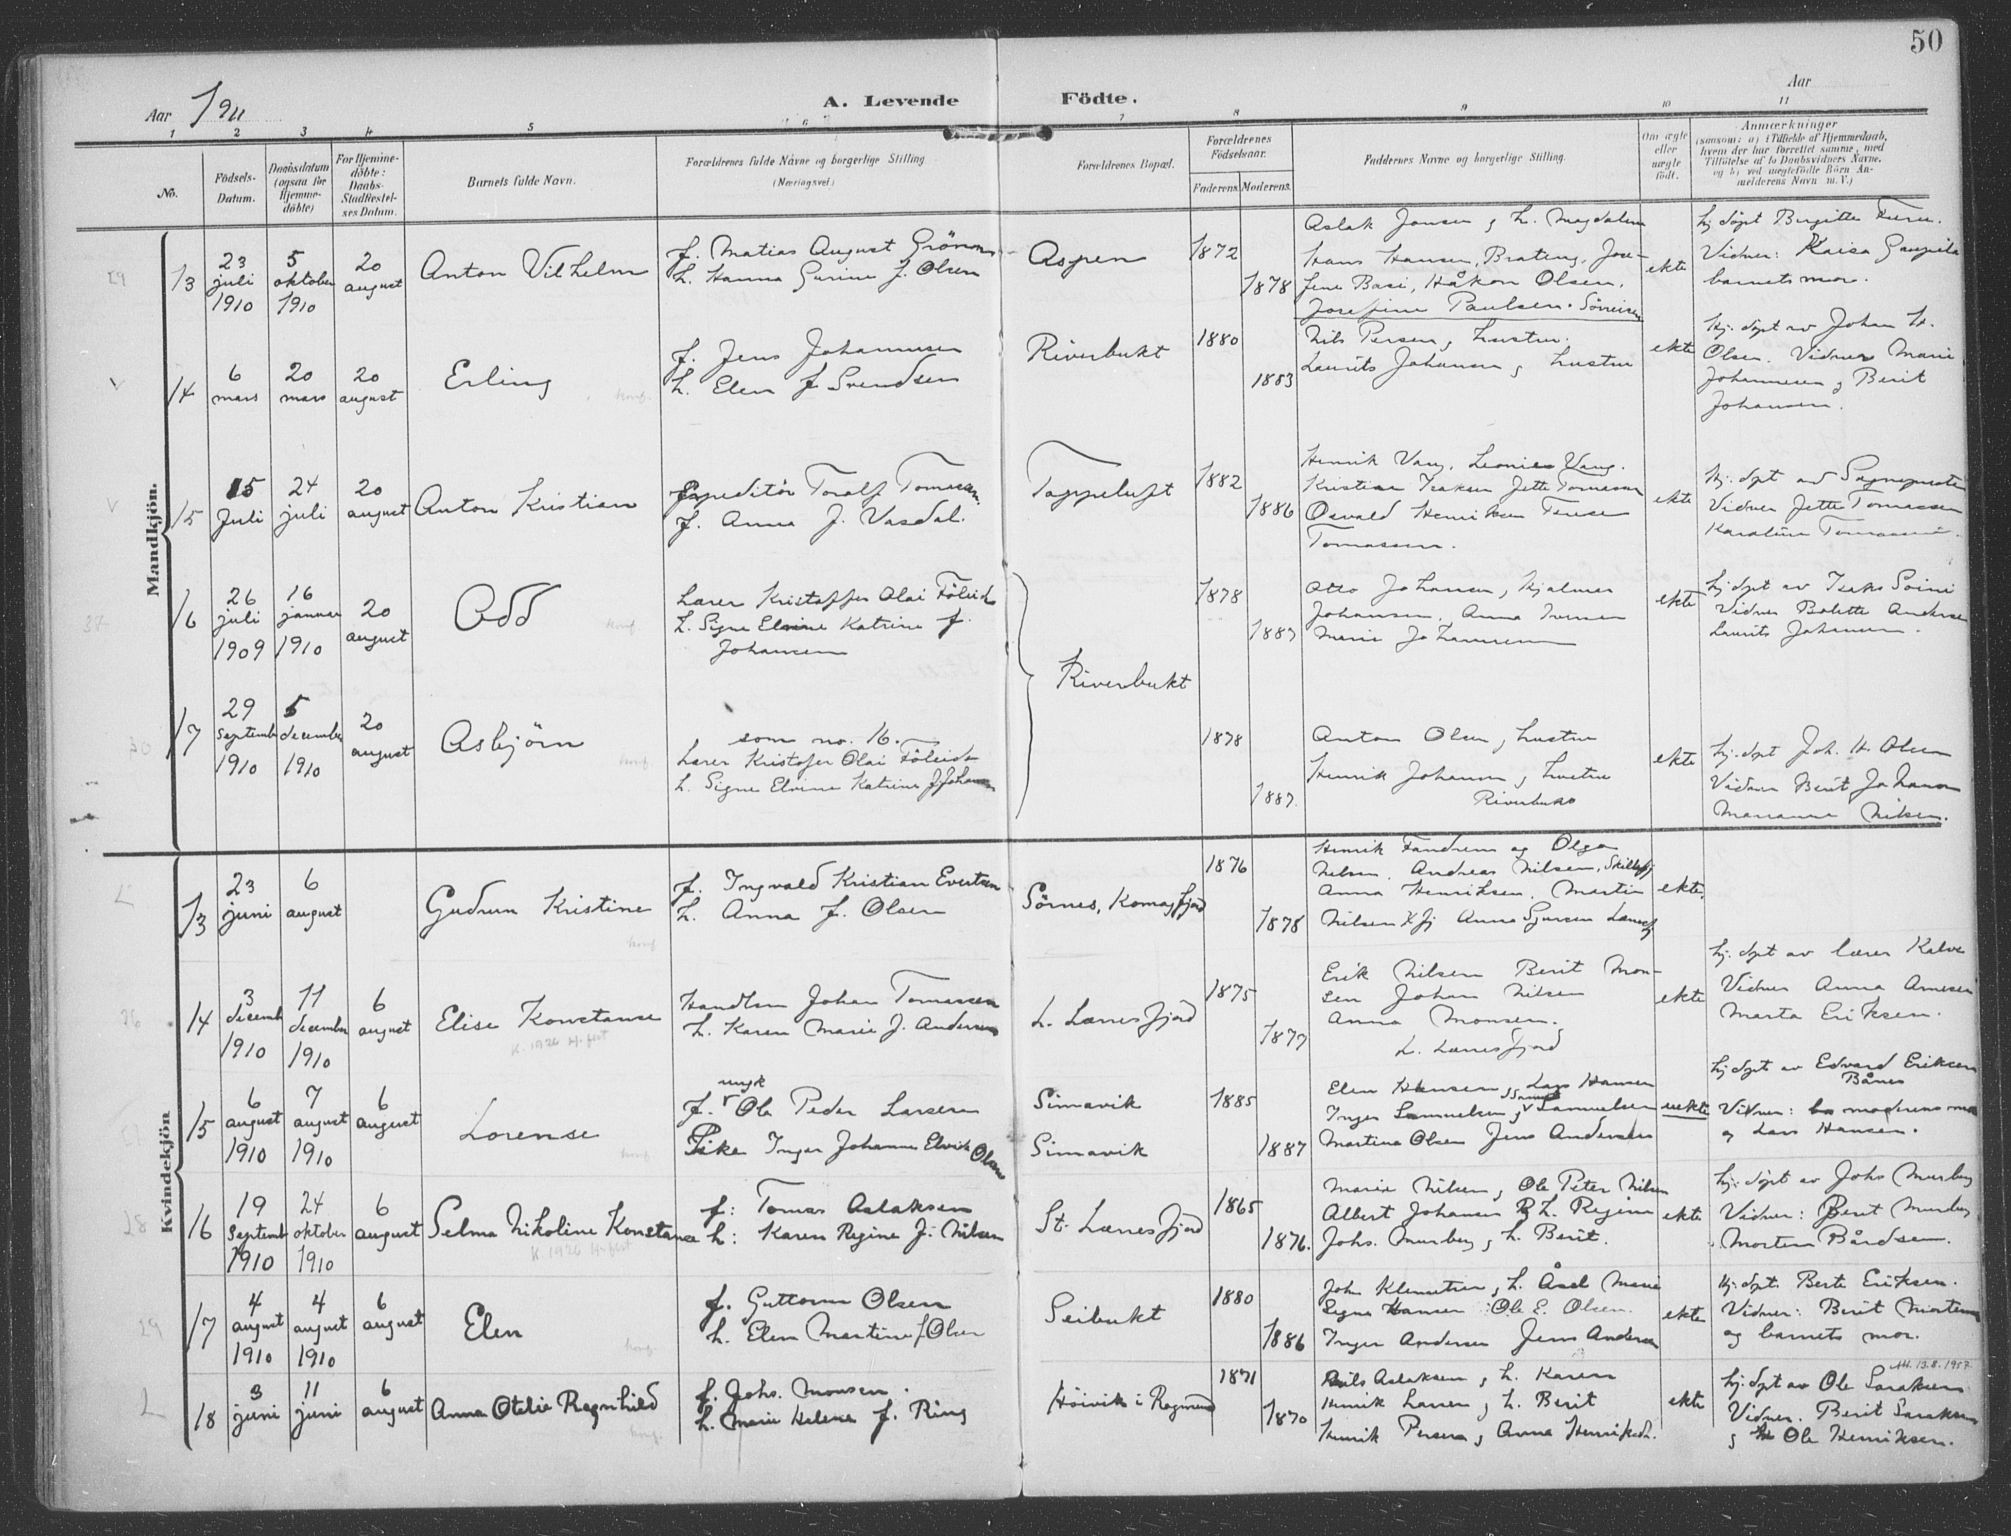 50
Aar 1911
A. Levende Födte.
Aar
1 2 3 4 5 6 7 8 9 10 11
No.
Födsels-Datum.
Daabsdatum (ogsaa for Hjemme-döbte)
For Hjemme-döbte: Daabs-Stadfæstel-ses Datum.
Barnets fulde Navn.
Forældrenes fulde Navne og borgerlige Stilling
(Næringsvei.)
Forældrenes Bopæl.
Forældrenes Födselsaar.
Faderens. Moderens.
Faddernes Navne og borgerlige Stilling.
Om ægte eller uægte födt.
Anmærkninger
(saasom: a) i Tilfælde af Hjemmedaab, hvem der har forrettet samme, med Tilföielse af to Daabsvidners Navne, og b) ved uægtefödte Börn An-melderens Navn m. V.)
Mandkjön.
13 23 juli 1910 5 oktober 1910 20 august Anton Vilhelm
f. Matias August Grönmo
h. Hanna Gurine f. Olsen
Aspen 1872 1878
Aslak Jonsen & h. Magdalena
Hans Hansen, Brateng, Jose-
fine Basi, Håkon Olsen,
Josefine Paulsen
ekte
hj. döpt Birgitte
Vidner: Kaisa
barnets mor.
14 6 mars 20 mars 20 august Erling
f. Jens Johannesen
h. Elen f. Svendsen
Riverbukt 1880 1883
Nils Persen & hustru.
Laurits Johansen & hustru
ekte
Hj. döpt av Johan H.
Olsen. Vidner Marie
Johannesen & Berit
Johansen.
15 15 Juli 24 juli 20 august Anton Kristian
Expeditör Toralf Tomassen
f. Anna f. Vasdal.
Tappeluft 1882 1886
Henrik Vang, Leonie Vang.
Kristine Isaksen Jette Tomassen
Osvald Henriksen
Tomassen.
ekte
hj. döpt av Sogneprest
Vidner Jette Tomassen
Tomassen
16 26 juli 1909 16 januar 1910 20 august Odd
Lærer Kristoffer Olai
h. Signe Elvine Katrine f.
Johansen
Riverbukt 1878 1887
Otto Johansen, Hjalmar
Johansen, Anna Iversen
Marie Johannesen
ekte
hj. döpt av Isaks
Vidner Bolette Andersen
Laurits Johansen.
17 29 September 1910 5 december 1910 20 august Asbjörn
som no. 16.
Lærer Kristofer Olai
h. Signe Elvine Katrine f. Johansen
1878 1887.
Anton Olsen & hustru
Henrik Johansen & hustru
Riverbukt
ekte
hj. döpt Joh. H. Olsen
Vidner Berit Johansen
Marianne Nilsen.
Kvindekjön
13 23 juni 6 august Gudrun Kristine
f. Ingvald Kristian Evertsen
h. Anna f. Olsen
Sörnes, Komagfjord 1876 1878
Henrik Tandrem og Olga
Nilsen. Andreas Nilsen,
Anna Henriksen. Martin
Nilsen
ekte.
14 3 decemb 1910 11 december 1910 6 august Elise Konstanse
K. 1926
Handlsm Johan Tomassen
h. Karen Marie f. Andersen
L. Lærresfjord 1875 1877
Erik Nilsen Berit Mon-
sen Johan Nilsen
Anna Monsen,
ekte
hj. döpt av lærer Kalve
Vidner Anna Arnesen
Marta Eriksen.
15 6 august 1910 7 august 1910 6 august Lorense
f. ungk Ole Peder Larsen
Pike Inger Johanne Elvik Olsen
Simavik
Simavik
1885 1887
Elen Hansen, Lars Hansen
Inger Samuelsen, Samuelsen
Martine Olsen Jens Andersen
uekte
hj. döpt av Edvard Eriksen
Bånes
Vidner: moderens mor
og Lars Hansen.
16 19 Septemb 1910 24 oktober 1910 6 august Selma Nikoline Konstanse
K. 1926
f: Tomas Aslaksen
h: Karen Regine f. Nilsen
1865 1876.
Marie Nilsen, Ole Peter Nilsen
Albert Johansen & h. Regine
Johs. Murberg & h. Berit.
ekte
hj. döpt av Johs Murberg
Vidner: Berit Murberg
Morten Bårdsen.
17 4 august 1910 4 august 1910 6 august Elen
f. Guttorm Olsen
h. Elen Martine f Olsen
Seibukt 1880 1886
John Klemetsen & h. Åsel Marie
Signe Hansen Ole E. Olsen.
Inger Andersen Jens Andersen
ekte
Hj. döpt. Berte Eriksen.
Vidner: Berit Mortensen
og barnets mor.
18 3 juni 11 juni 6 august Anna Otelie Ragnhild
f. Johs. Monsen.
h. Marie Helene f. Ring
1871 1870
Nils Aslaksen & h. Karen
Henrik Larsen & h. Berit
Henrik Persen & Anna Henriksdr.
ekte
13.8.1957
hj. döpt av Ole Saraksen
Vidner. Berit Saraksen
& Ole Henriksen.